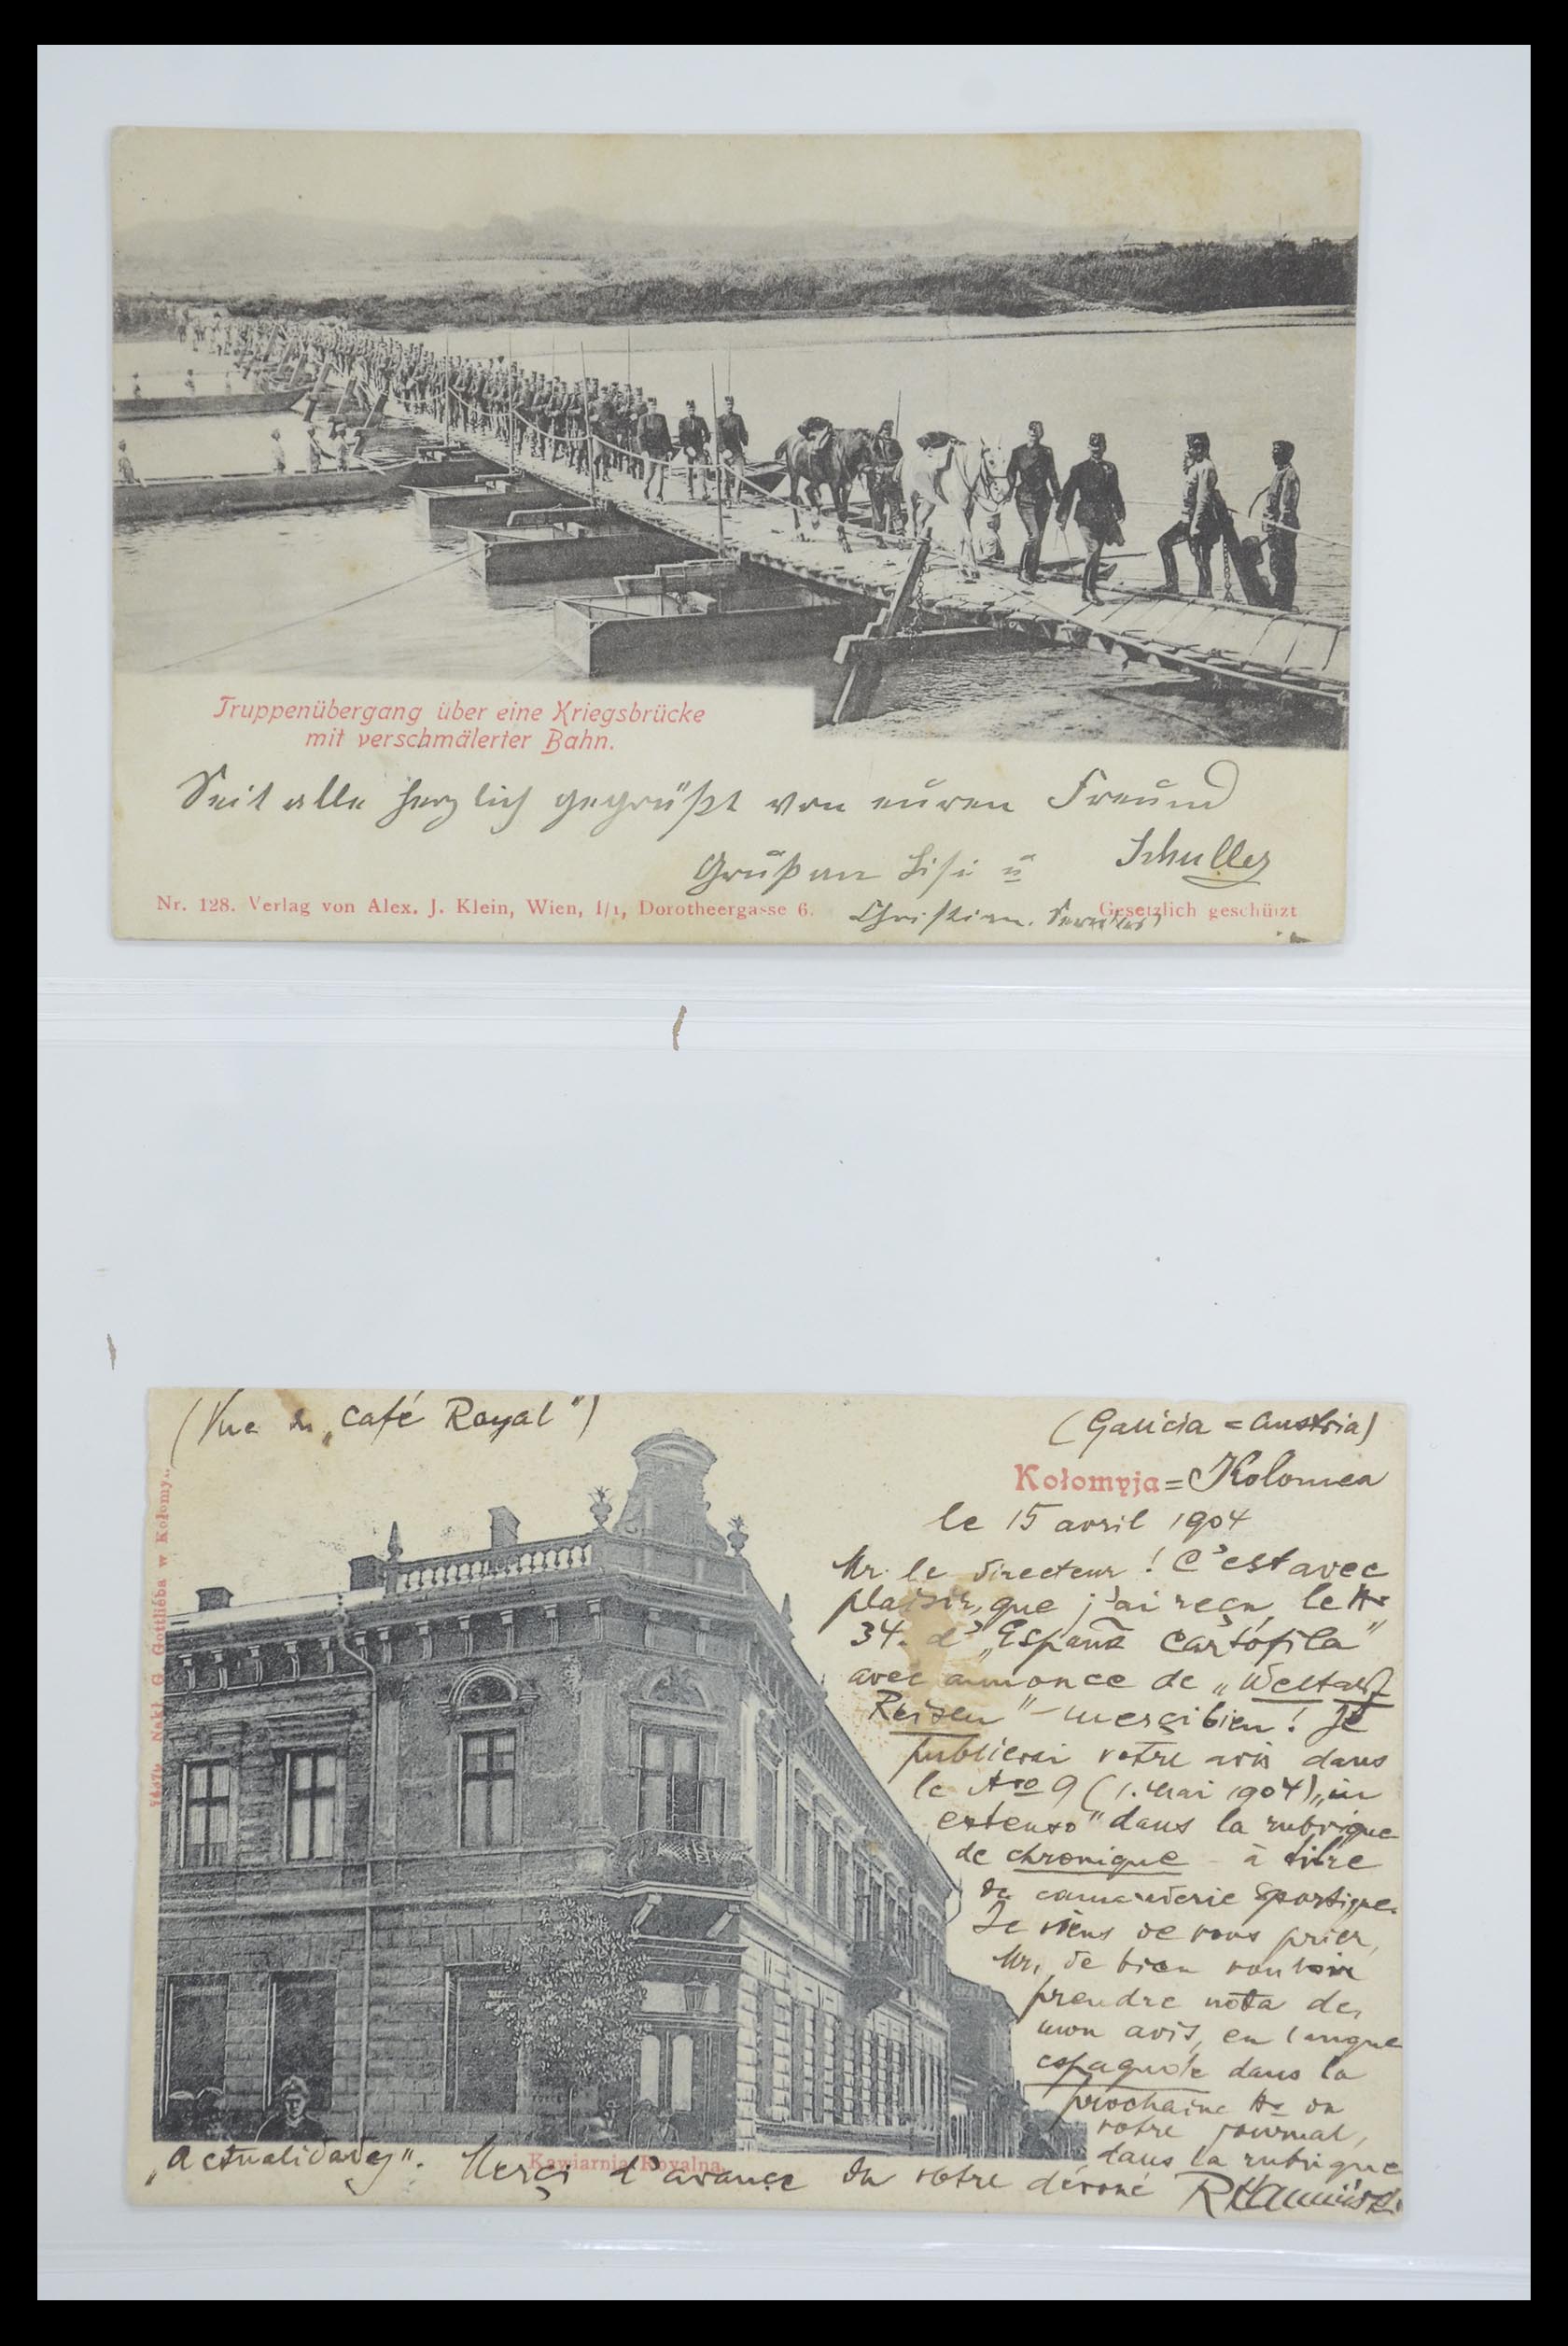 Truppenübergang über eine Kriegsbrücke
mit verschmälerter Bahn.
Seit alle herzlich gegrüßt von euren Freund
Schuller
Gruß an Lisi u
Nr. 128. Verlag von Alex. J. Klein, Wien, I/1, Dorotheergasse 6.
Christian.
Gesetzlich geschützt
(Vue du „Café Royal")
(Galicia = Austria)
Kołomyja = Kolomea
le 15 avril 1904
Mr. le directeur! C'est avec
plaisir, que j'ai reçu, le Nr
34. d' „España Cartófila"
avec annonce de „Weltauf
Reisen" - merçi bien! Je
publierai votre avis dans
le Nro 9 (1. Mai 1904) „in
extenso" dans la rubrique
de chronique - à titre
de camaraderie sportique.
Je viens de vous prier,
Mr, de bien vouloir
prendre nota de,
mon avis, en langue
espagnole dans la
prochaine Nr du
votre journal,
dans la rubrique
„Actualidades". Merçi d'avançe du votre dévoué
Kawiarnia Royalna.
Nakł. G. Gottlieba w Kołomyi.